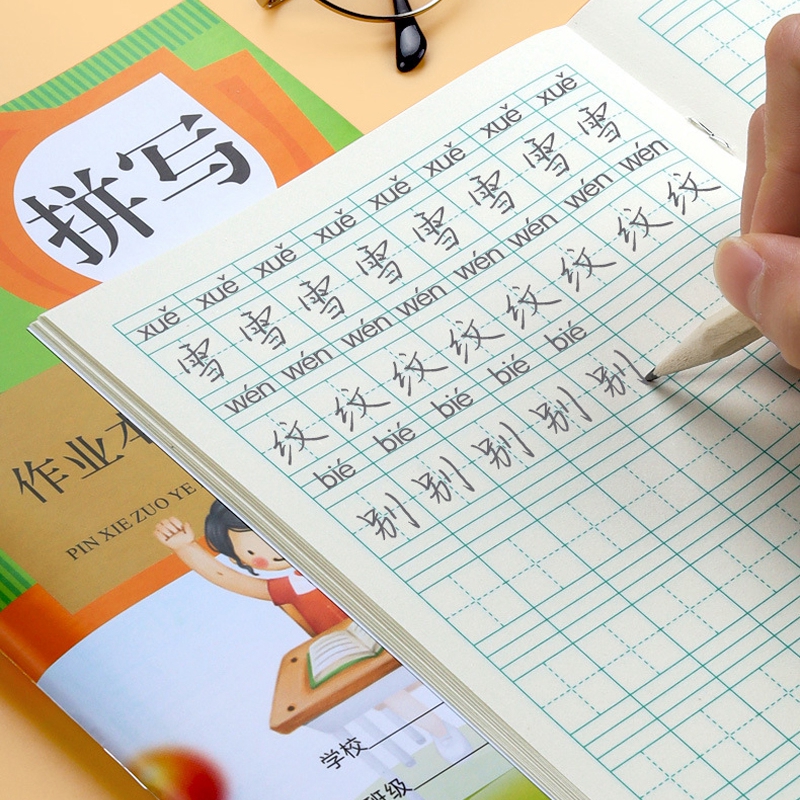 拼写
作业本
PIN XIE ZUO YE
学校
班级
xuě xuě xuě xuě xuě xuě xuě xuě
雪 雪 雪 雪 雪 雪 雪 雪
wén wén wén wén wén wén wén wén
纹 纹 纹 纹 纹 纹 纹 纹
bié bié bié bié bié
别 别 别 别 别